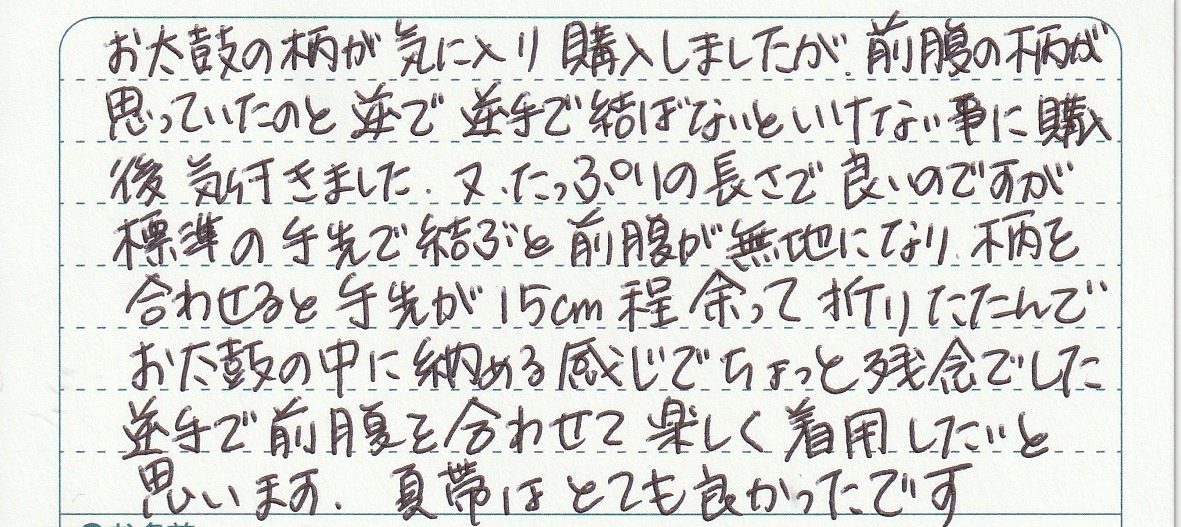 お太鼓の柄が気に入り購入しましたが、前腹の柄が
思っていたのと逆で逆手で結ばないといけない事に購入
後気付きました。又、たっぷりの長さで良いのですが
標準の手先で結ぶと前腹が無地になり、柄を
合わせると手先が15cm程余って折りたたんで
お太鼓の中に納める感じでちょっと残念でした
逆手で前腹を合わせて楽しく着用したいと
思います。夏帯はとても良かったです